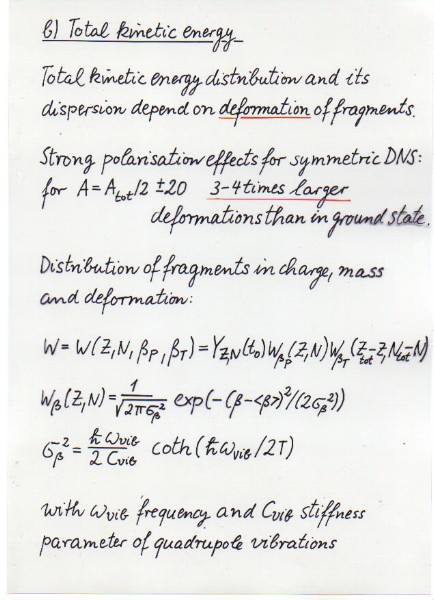 b) Total kinetic energy
Total kinetic energy distribution and its
dispersion depend on deformation of fragments.
Strong polarisation effects for symmetric DNS:
for A = A_tot/2 ±20 3-4 times larger
deformations than in ground state.
Distribution of fragments in charge, mass
and deformation:
W = W(Z,N,β_P,β_T) = Y_{Z,N}(t_0) W_{β_P}(Z,N) W_{β_T}(Z_tot-Z, N_tot-N)
W_β(Z,N) = 1/√(2πσ_β²) exp(-(β-<β>)²/(2σ_β²))
σ_β² = ħω_vib/(2C_vib) coth(ħω_vib/2T)
with ω_vib frequency and C_vib stiffness
parameter of quadrupole vibrations